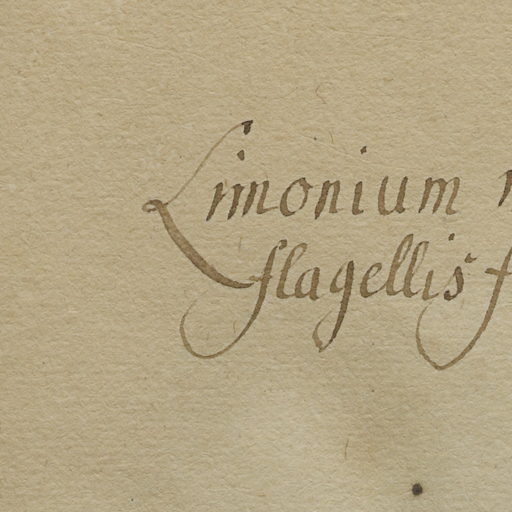 Limonium
flagellis